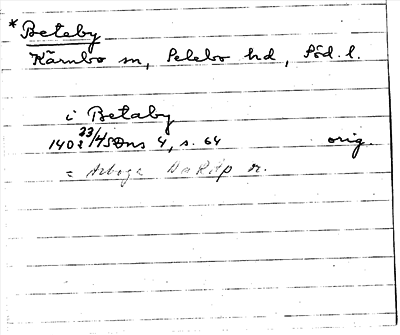 * Betaby
Kärnbo sn, Selebo hd, Söd. l.
i Betaby
1402 23/4 Sns 4, s. 64 orig.
= Arboga DaRAp or.